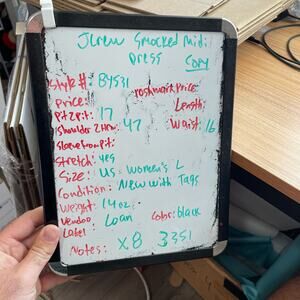 Jcrew Smocked midi
Dress
Copy
Style #: BY531
Price: Poshmark Price:
Pt2pit: 17 Length:
Shoulder 2 Hem: 47 Waist: 16
Stretch: yes
Size: US Women's L
Condition: New with Tags
Weight: 14oz
Vendoo Loan Color: black
Label
Notes: X8 3351